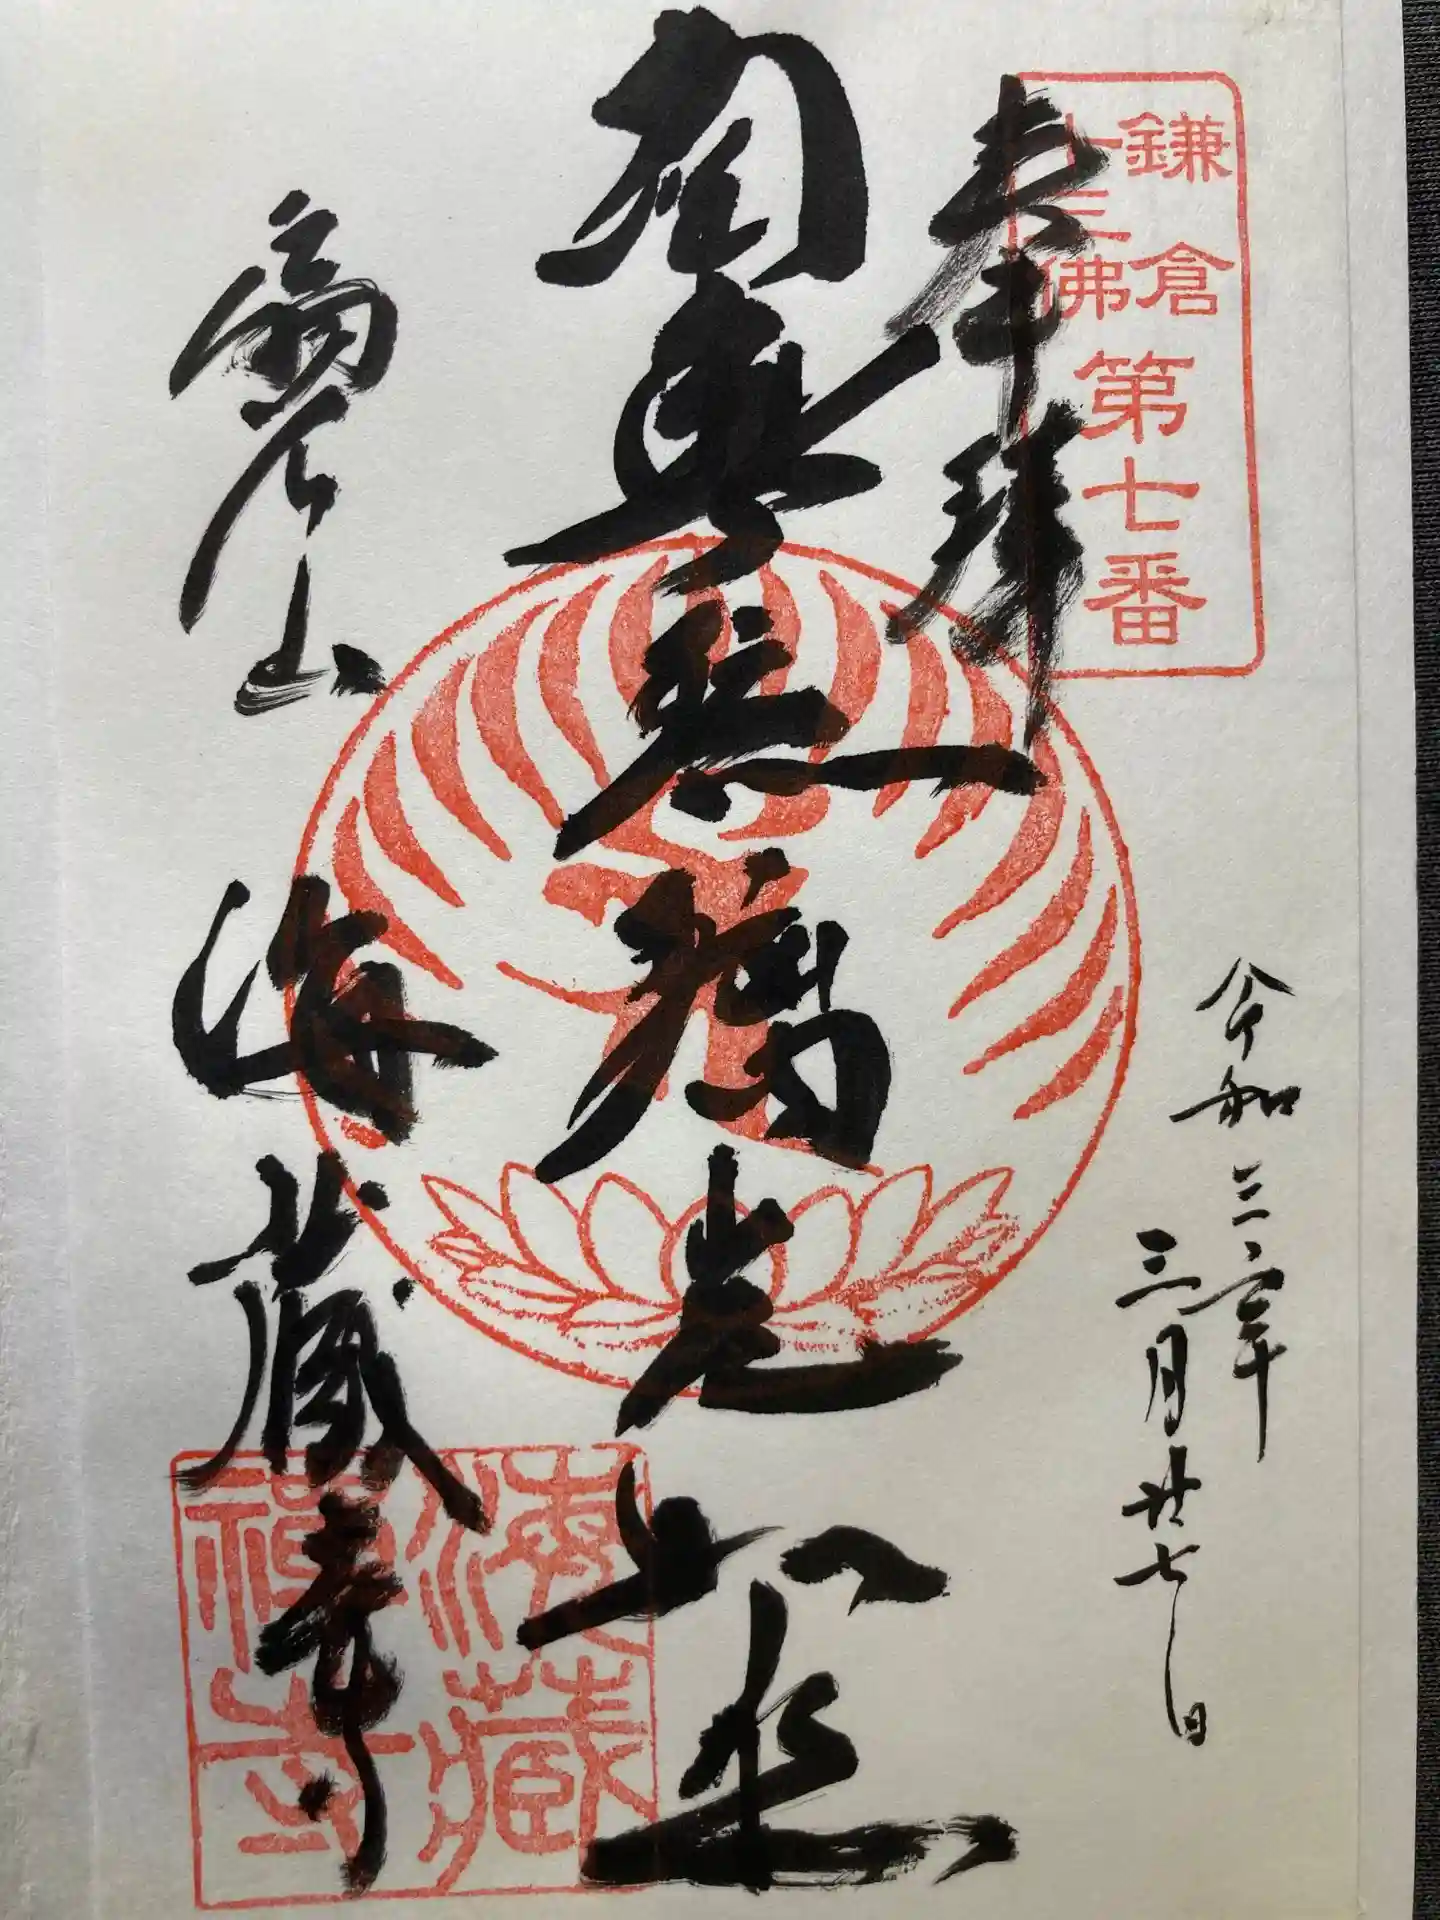 鎌倉
十三佛
第七番
奉拝
令和
年
三月廿七日
南無瑠璃光如来
扇谷山
海蔵寺
海藏
禅寺